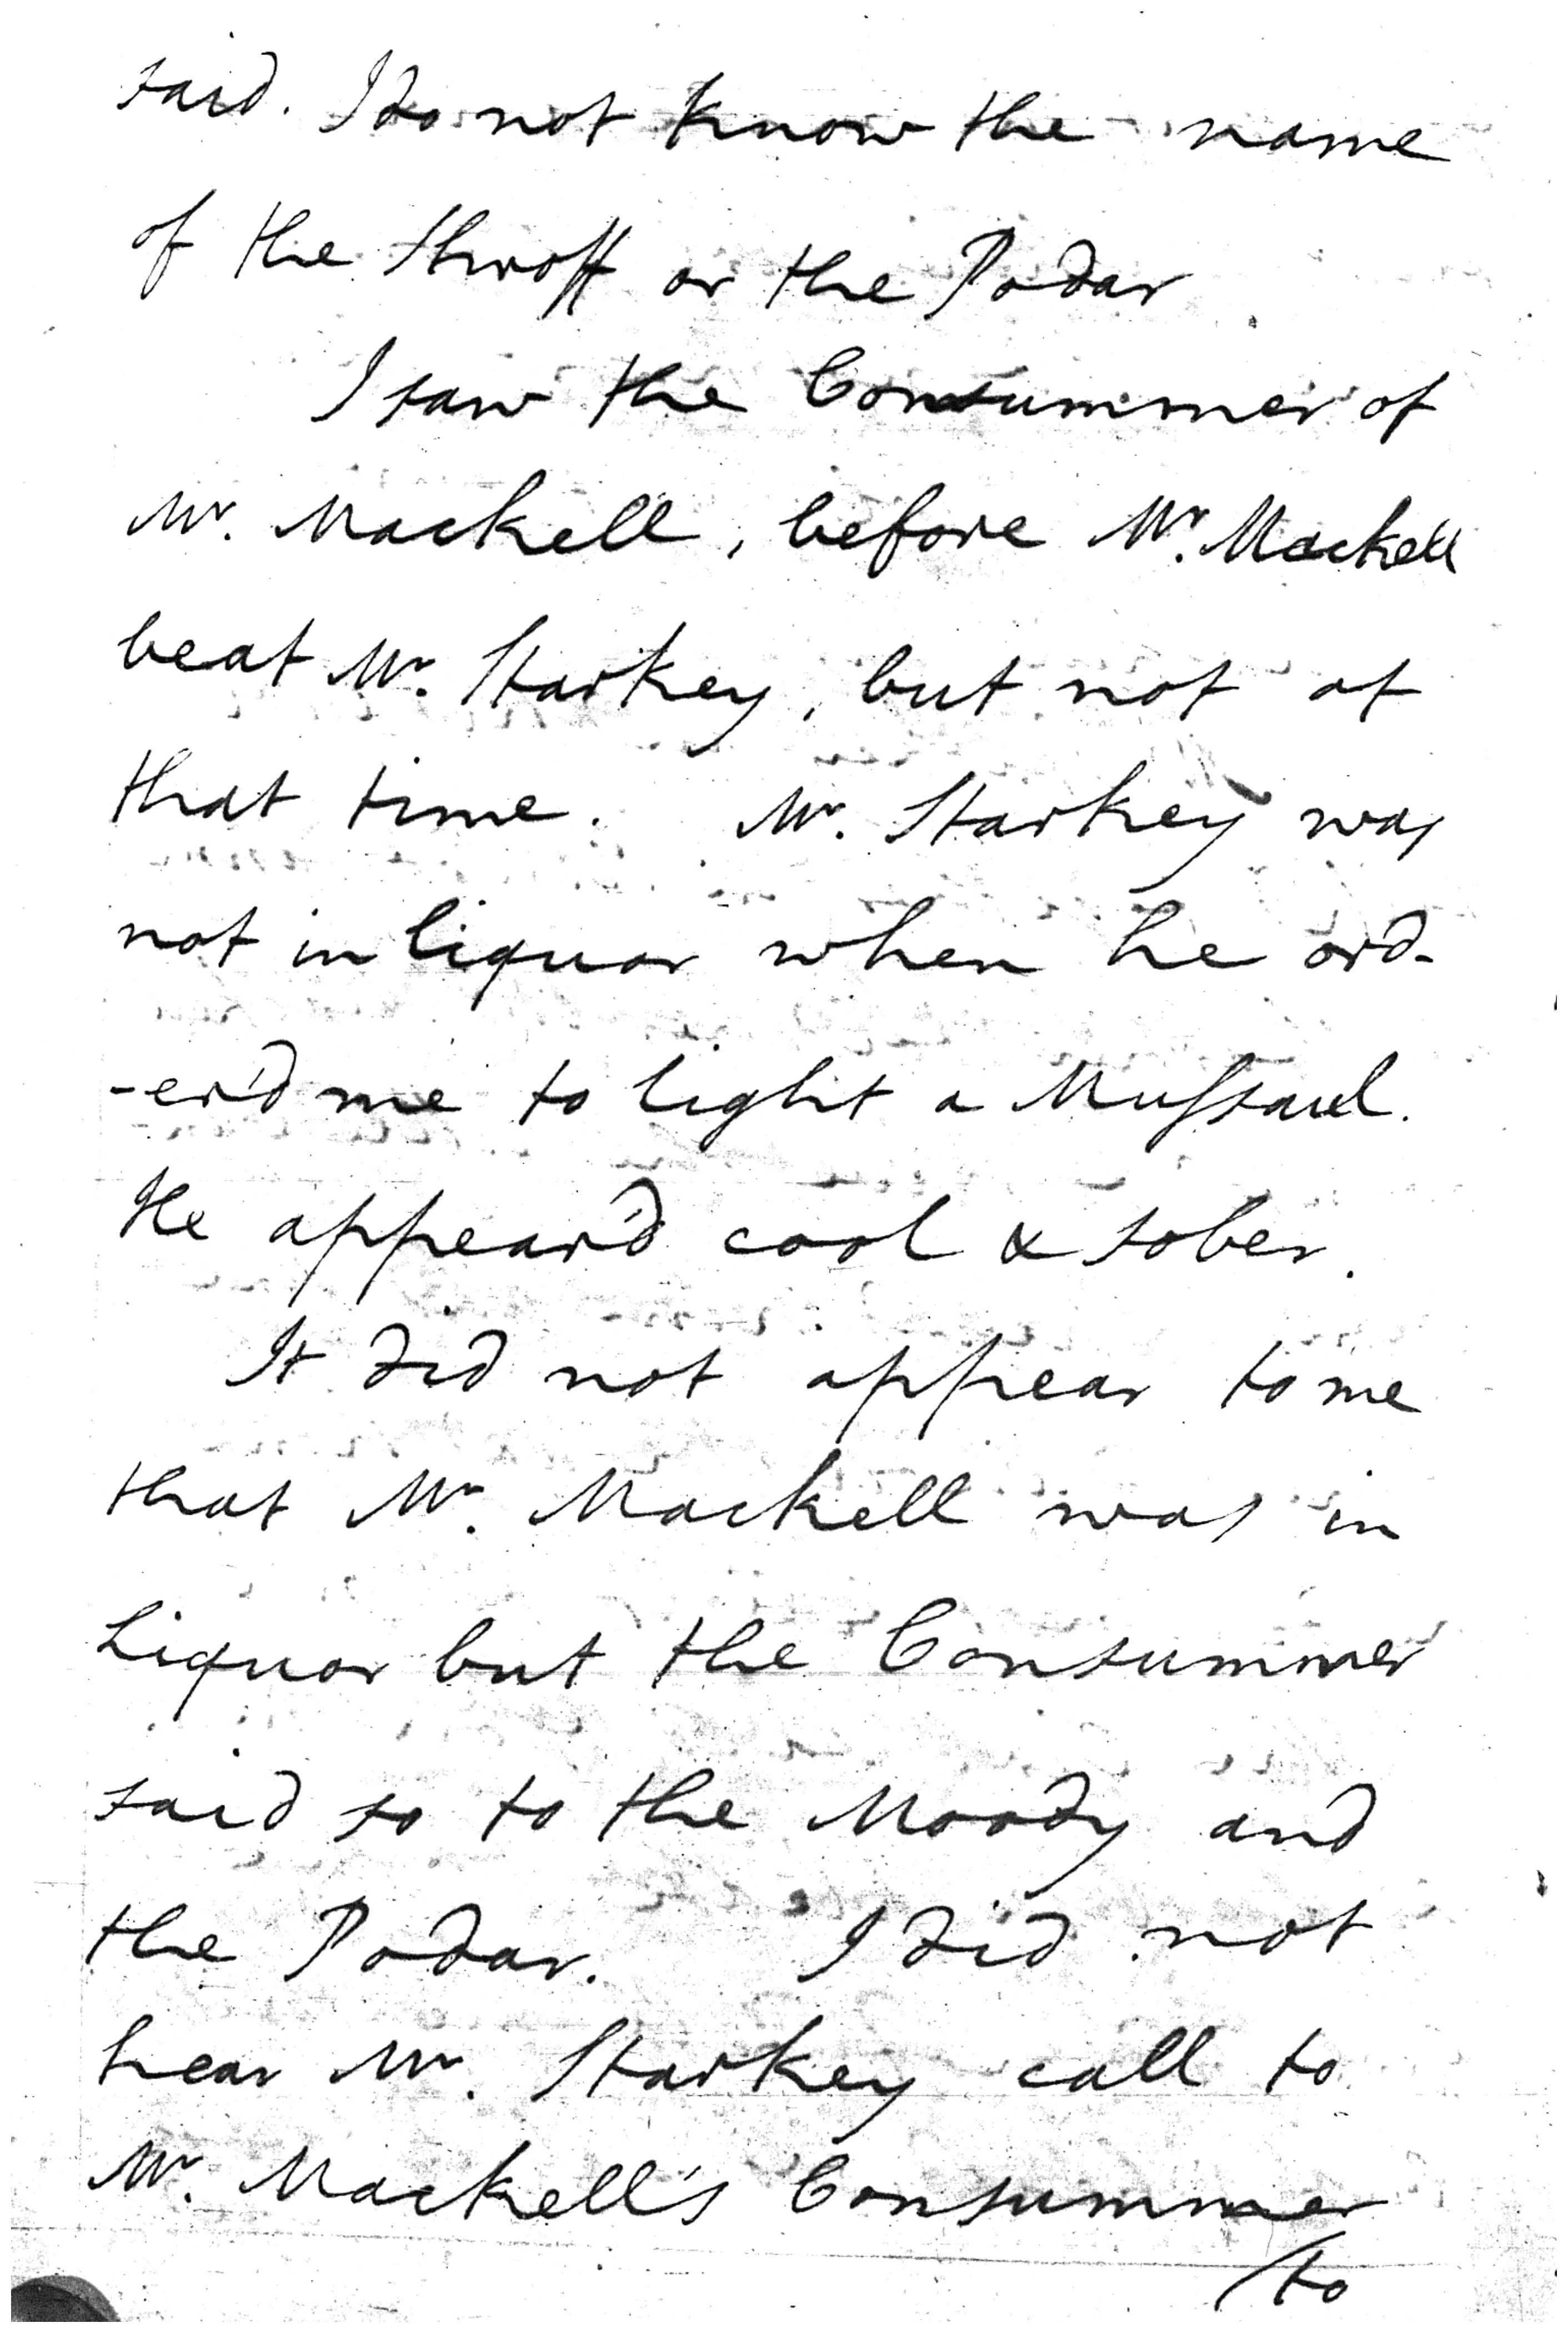 said. I do not know the name
of the Shroff or the Podar
I saw the Consummer of
Mr. Mackell, before Mr. Mackell
beat Mr. Starkey, but not at
that time. Mr. Starkey was
not in liquor when he ord-
-er'd me to light a Mussaul.
He appear'd cool & sober.
It did not appear to me
that Mr. Mackell was in
Liquor but the Consummer
said so to the Moody and
the Podar. I did not
hear Mr. Starkey call to
Mr. Mackell's Consummer
to